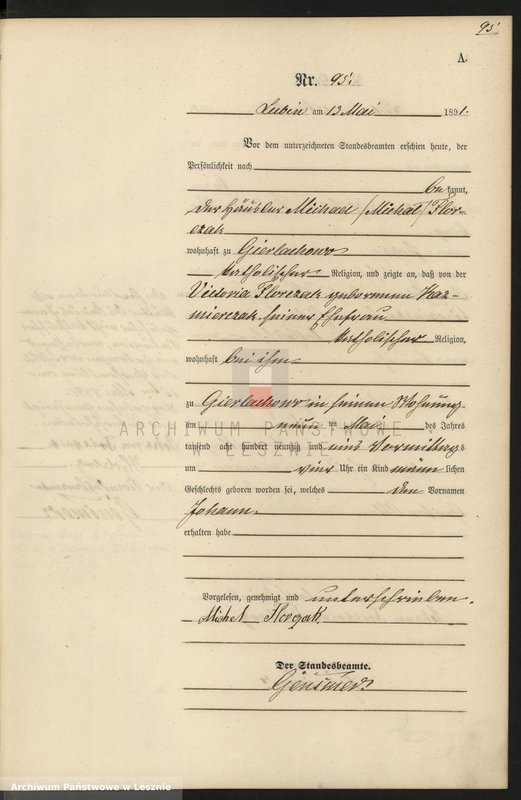 95
A.
Nr. 95.
Lubin am 13 Mai 1891.
Vor dem unterzeichneten Standesbeamten erschien heute, der
Persönlichkeit nach
be kannt,
der Häusler Michael /Michal/ Flor-
czak
wohnhaft zu Gierlachowo
katholischer Religion, und zeigte an, daß von der
Victoria Florczak geborenen Kaz-
mierczak, seiner Ehefrau
katholischer Religion,
wohnhaft bei ihm
zu Gierlachowo in seiner Wohnung
am neun ten Mai des Jahres
tausend acht hundert neunzig und eins Vormittags
um vier Uhr ein Kind männ lichen
Geschlechts geboren worden sei, welches den Vornamen
Johann
erhalten habe
Vorgelesen, genehmigt und unterschrieben.
Michel
Der Standesbeamte.
ARCHIWUM PAŃSTWOWE
LESZNIE
Archiwum Państwowe w Lesznie